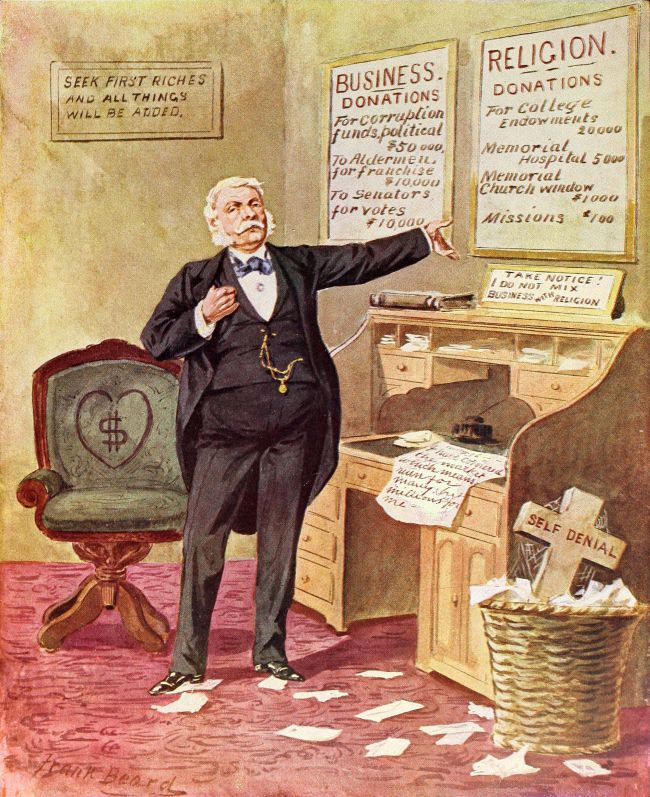 SEEK FIRST RICHES
AND ALL THINGS
WILL BE ADDED.
BUSINESS.
DONATIONS
For Corruption
funds, political
$50000,
To Aldermen,
for franchise
$10,000
To Senators
for votes
$10,000
RELIGION.
DONATIONS
For College
Endowments
20000
Memorial
Hospital 5000
Memorial
Church window
$1000
Missions $100
TAKE NOTICE!
I DO NOT MIX
BUSINESS WITH RELIGION
$
the market
which means
ruin for
many but
millions for
me
SELF DENIAL
Frank Beard